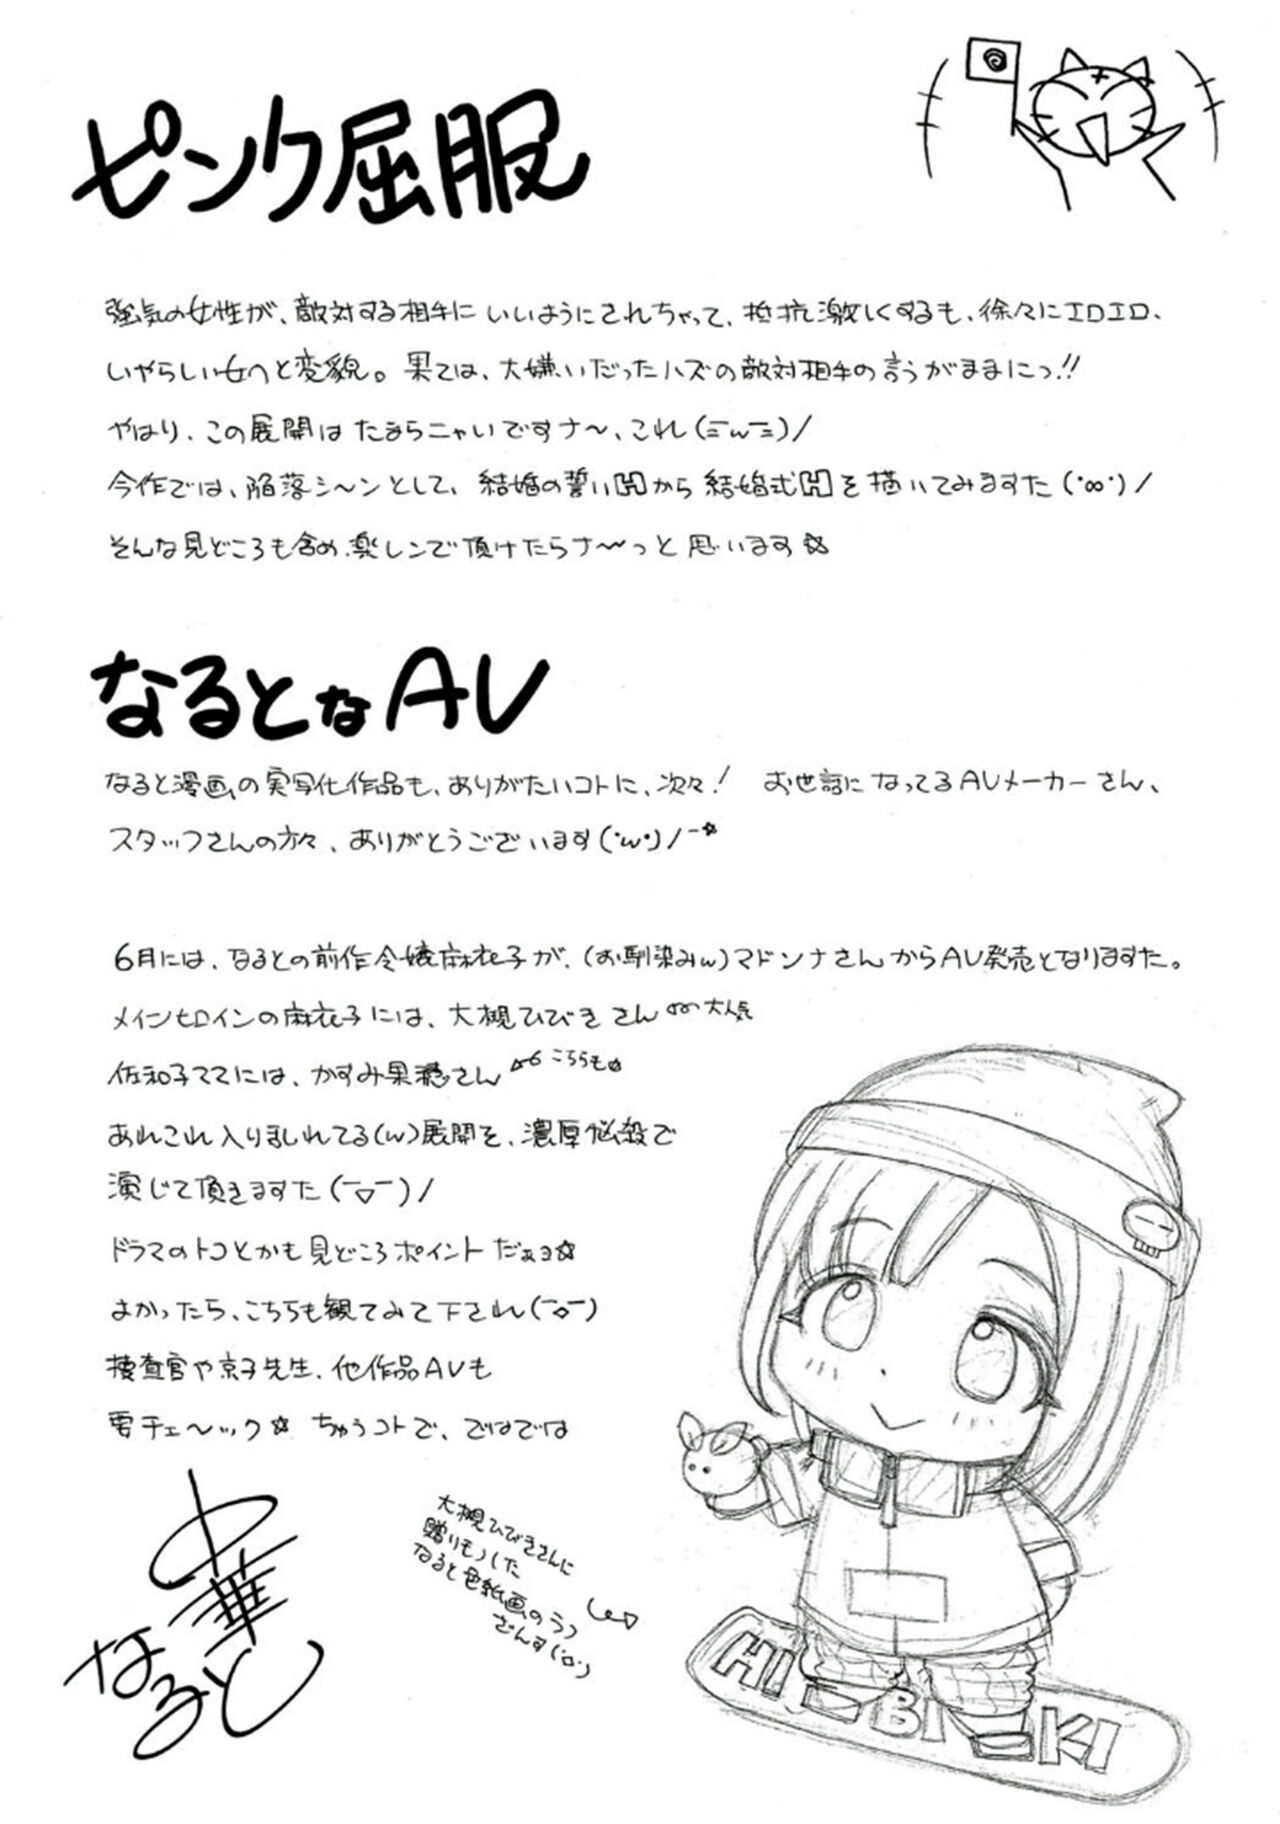 ピンク屈服
強気の女性が、敵対する相手にいいようにされちゃって、抵抗激しくするも、徐々にエロエロ、
いやらしい女へと変貌。果ては、大嫌いだったハズの敵対相手の言うがままにっ!!
やはり、この展開はたまらニャいですナ〜、これ(ミ￣ω￣ミ)/
今作では、陥落シ〜ンとして、結婚の誓いHから結婚式Hを描いてみますた(・∞・)/
そんな見どころも含め、楽しンで頂けたらナ〜っと思います☆
なるとなAV
なると漫画の実写化作品も、ありがたいコトに、次々! お世話になってるAVメーカーさん、
スタッフさんの方々、ありがとうございます(・ω・)/-☆
6月には、なるとの前作令嬢麻衣子が、(お馴染みw)マドンナさんからAV発売となりますた。
メインヒロインの麻衣子には、大槻ひびきさん 大人気
佐和子ママには、かすみ果穂さん こちらも☆
あれこれ入りましれてる(w)展開を、濃厚悩殺で
演じて頂きますた(￣▽￣)/
ドラマのトコとかも見どころポイントだぁョ☆
よかったら、こちらも観てみて下され(￣◇￣)
捜査官や京子先生、他作品AVも
要チェ〜ック☆ ちゅうコトで、ではでは
中華
なると
大槻ひびきさんに
贈りものした
なると色紙画のラフ
ざんす(・o・)
HIBIKI